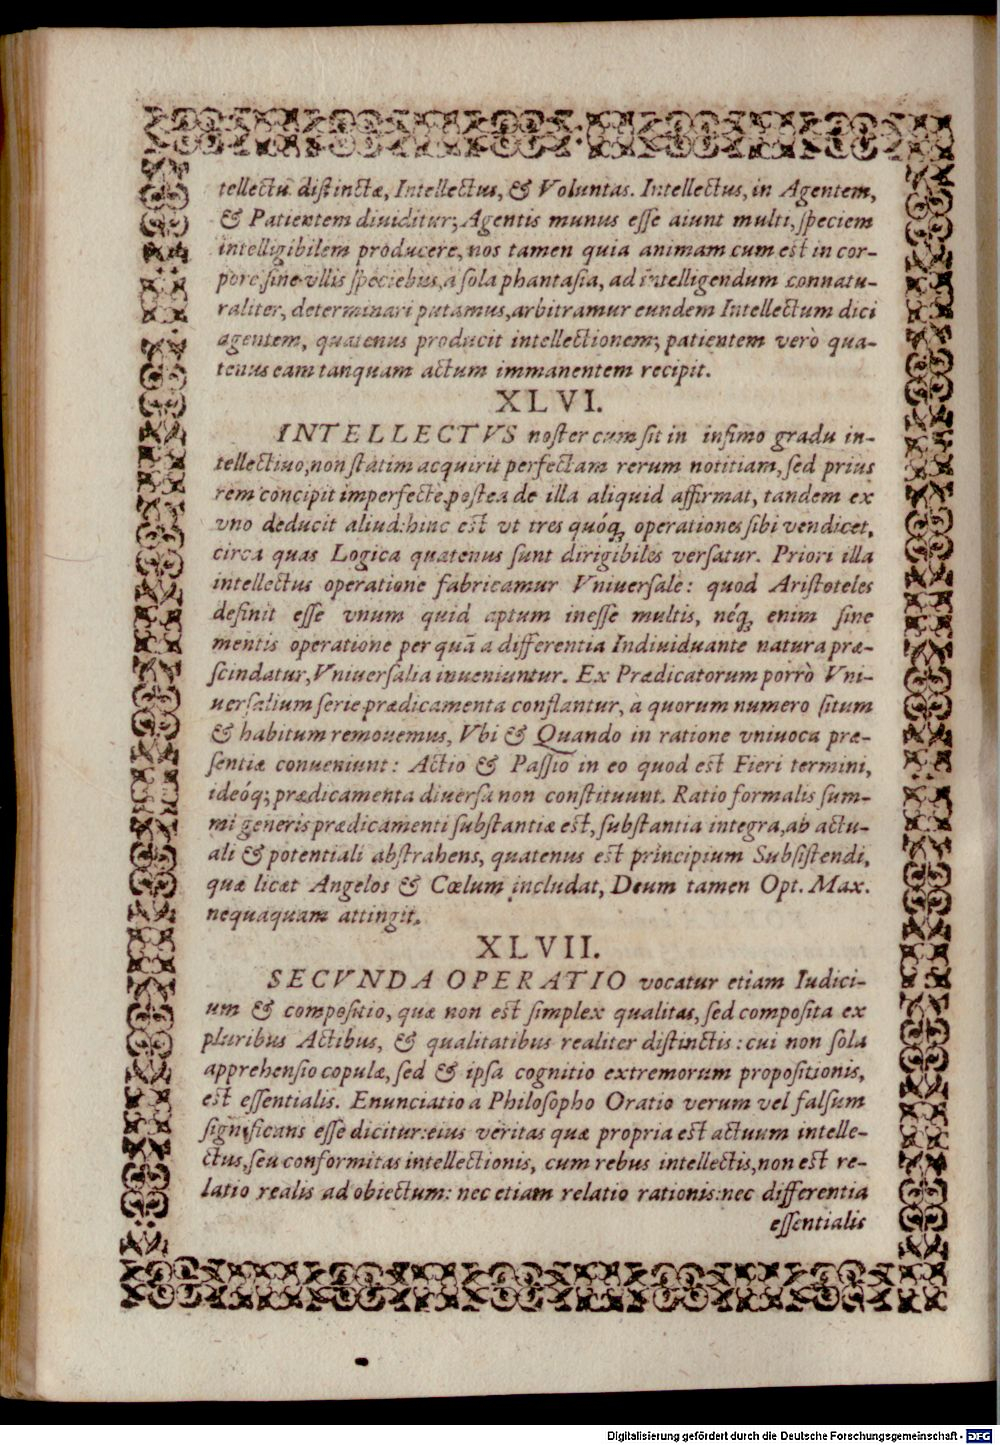 tellectu distinctæ, Intellectus, & Voluntas. Intellectus, in Agentem,
& Patientem diuiditur; Agentis munus esse aiunt multi, speciem
intelligibilem producere, nos tamen quia animam cum est in cor-
pore, sine vllis speciebus, à sola phantasia, ad intelligendum connatu-
raliter, determinari putamus, arbitramur eundem Intellectum dici
agentem, quatenus producit intellectionem; patientem verò qua-
tenus eam tanquam actum immanentem recipit.
XLVI.
INTELLECTVS noster cum sit in infimo gradu in-
tellectiuo, non statim acquirit perfectam rerum notitiam, sed prius
rem concipit imperfecte, postea de illa aliquid affirmat, tandem ex
vno deducit aliud: hinc est vt tres quóq; operationes sibi vendicet,
circa quas Logica quatenus sunt dirigibiles versatur. Priori illa
intellectus operatione fabricamur Vniuersale: quod Aristoteles
definit esse vnum quid aptum inesse multis, néq; enim sine
mentis operatione per quã a differentia Indiuiduante natura præ-
scindatur, Vniuersalia inueniuntur. Ex Prædicatorum porrò Vni-
uersalium serie prædicamenta conflantur, à quorum numero situm
& habitum remouemus, Vbi & Quando in ratione vniuoca præ-
sentiæ conueniunt: Actio & Passio in eo quod est Fieri termini,
ideóq; prædicamenta diuersa non constituunt. Ratio formalis sum-
mi generis prædicamenti substantiæ est, substantia integra, ab actu-
ali & potentiali abstrahens, quatenus est principium Subsistendi,
quæ licæt Angelos & Cœlum includat, Deum tamen Opt. Max.
nequaquam attingit.
XLVII.
SECVNDA OPERATIO vocatur etiam Iudici-
um & compositio, quæ non est simplex qualitas, sed composita ex
pluribus Actibus, & qualitatibus realiter distinctis: cui non sola
apprehensio copulæ, sed & ipsa cognitio extremorum propositionis,
est essentialis. Enunciatio a Philosopho Oratio verum vel falsum
significans esse dicitur: eius veritas quæ propria est actuum intelle-
ctus, seu conformitas intellectionis, cum rebus intellectis, non est re-
latio realis ad obiectum: nec etiam relatio rationis: nec differentia
essentialis
Digitalisierung gefördert durch die Deutsche Forschungsgemeinschaft - DFG